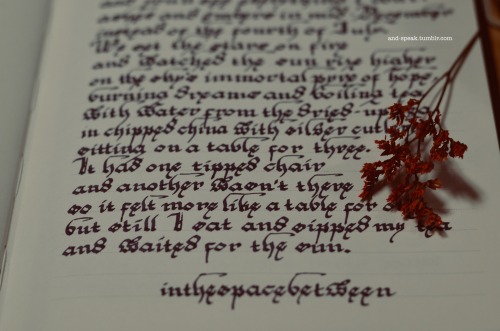 and-speak.tumblr.com
and embers in
instead of the fourth of July.
We set the stars on fire
and watched the sun rise higher
on the sky's immortal pyre of hope,
burning dreams and boiling tea
with water from the dried-up
in chipped china with silver
sitting on a table for three.
It had one tipped chair
and another wasn't there
so it felt more like a table for
but still I sat and sipped my tea
and waited for the sun.
inthespacebetween